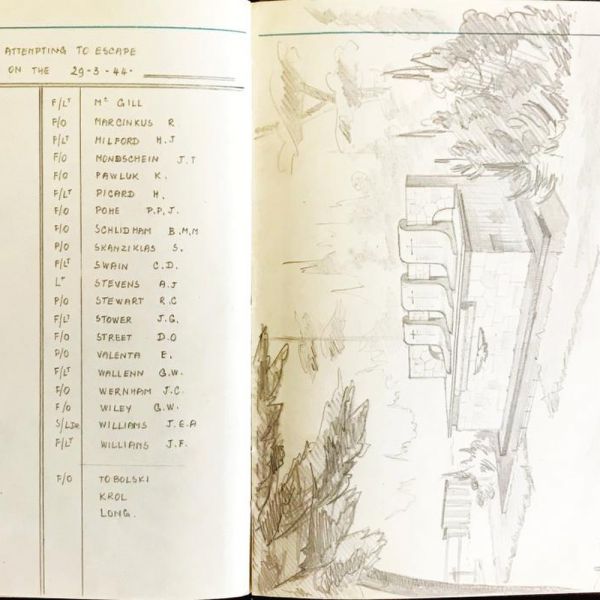 ATTEMPTING TO ESCAPE
ON THE 29-3-44.
F/LT Mc GILL
F/O MARCINKUS R
F/LT MILFORD H.J
F/O MONDSCHEIN J.T
F/O PAWLUK K.
F/LT PICARD H.
F/O POHE P.P.J.
F/O SCHLIDHAM B.M.M
P/O SKANZIKLAS S.
F/LT SWAIN C.D.
LT STEVENS A.J
P/O STEWART R.C
F/LT STOWER J.G.
F/O STREET D.O
P/O VALENTA E.
F/LT WALLENN G.W.
F/O WERNHAM J.C.
F/O WILEY G.W.
S/LDR WILLIAMS J.E.A
F/LT WILLIAMS J.F.
F/O TOBOLSKI
KROL
LONG.